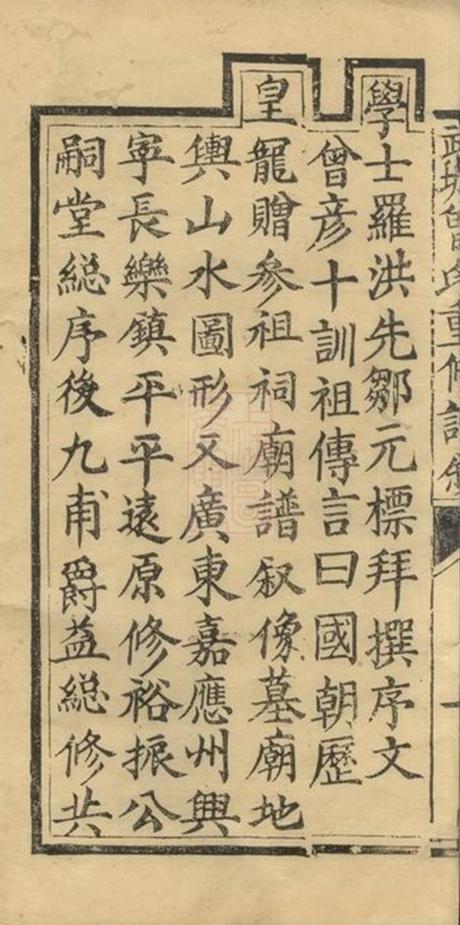 武城曾氏重修譜叙
學士羅洪先鄒元標拜撰序文
曾彥十訓祖傳言曰國朝歷
皇寵贈參祖祠廟譜叙像墓廟地
輿山水圖形又廣東嘉應州興
寜長樂鎮平平逺原修裕振公
嗣堂総序後九甫爵益総修共